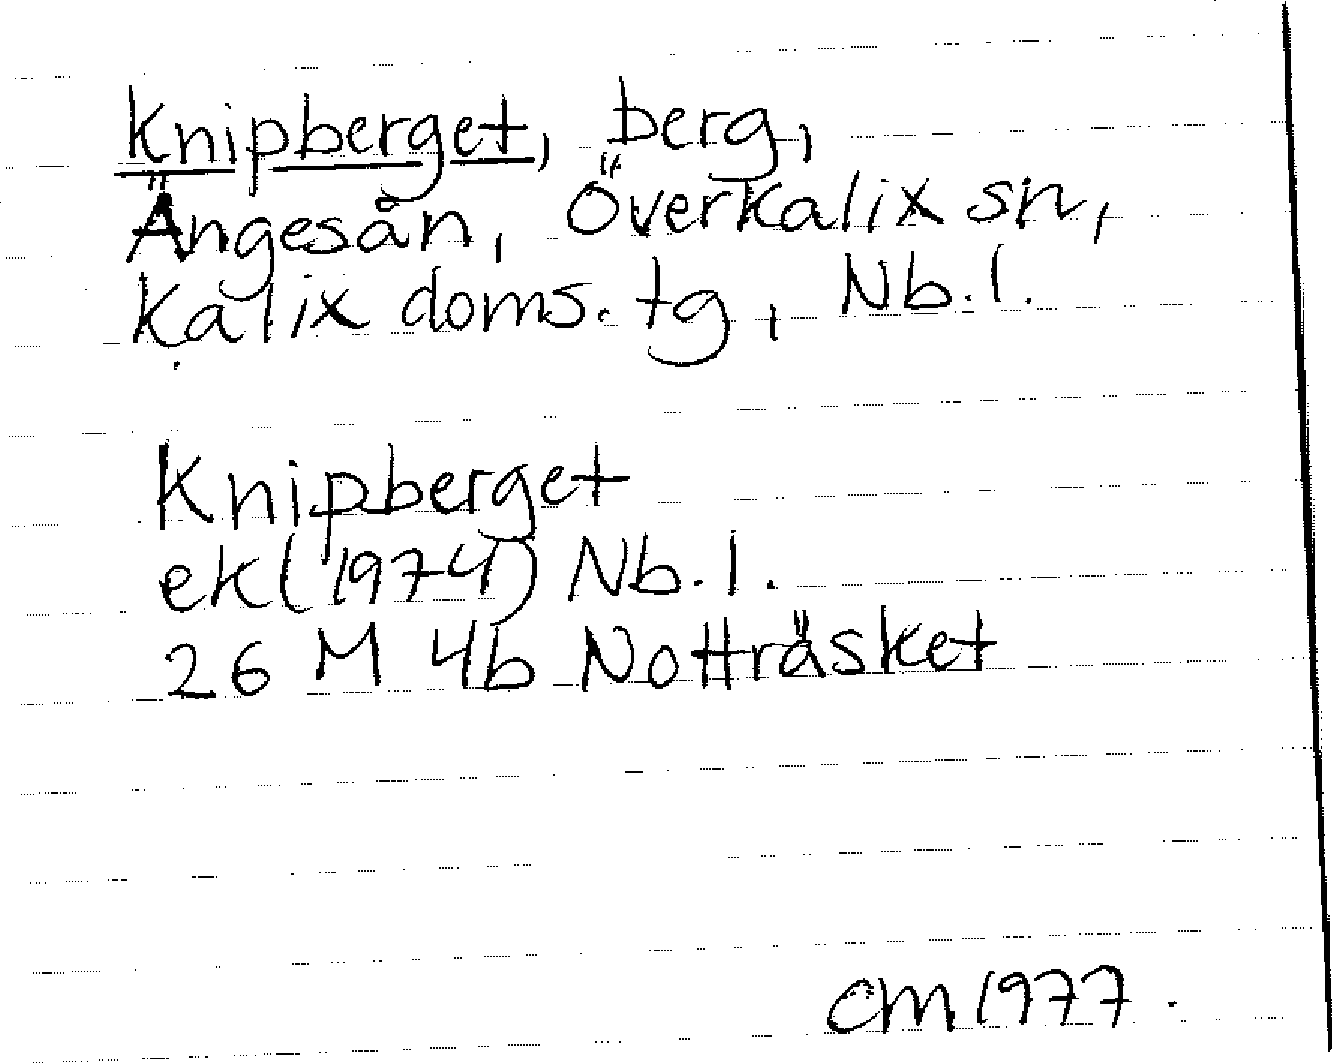 Knipberget, berg,
Ängesån, Överkalix sn,
Kalix doms. tg, Nb. l.
Knipberget
ek (1974) Nb. l.
26 M 4b Notträsket
CM 1977.